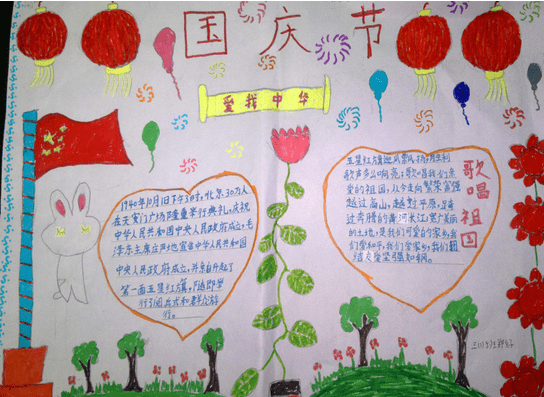 国庆节
爱我中华
1940年10月1日下午3点,北京30万人
在天安门广场隆重举行典礼,庆祝
中华人民共和国中央人民政府成立。毛
泽东主席庄严地宣告中华人民共和国
中央人民政府成立,并亲自升起了
第一面五星红旗。随即举
行了阅兵式和群众游
行。
歌唱祖国
五星红旗迎风飘扬,胜利
歌声多么响亮;歌唱我们亲
爱的祖国,从今走向繁荣富强
越过高山,越过平原,
过奔腾的黄河长江;宽广美丽
的土地,是我们可爱的家乡我
们爱和平,我们爱家乡,我们团
结友爱坚强如钢。